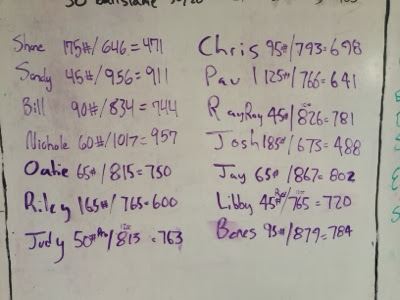 Shane 175#/646=471
Sandy 45#/956=911
Bill 90#/834=744
Nichole 60#/1017=957
Oatie 65#/815=750
Riley 165#/765=600
Judy 50#/813=763
Chris 95#/793=698
Paul 125#/766=641
RayRay 45#/826=781
Josh 185#/673=488
Jay 65#/867=802
Libby 45#/765=720
Bones 95#/879=784